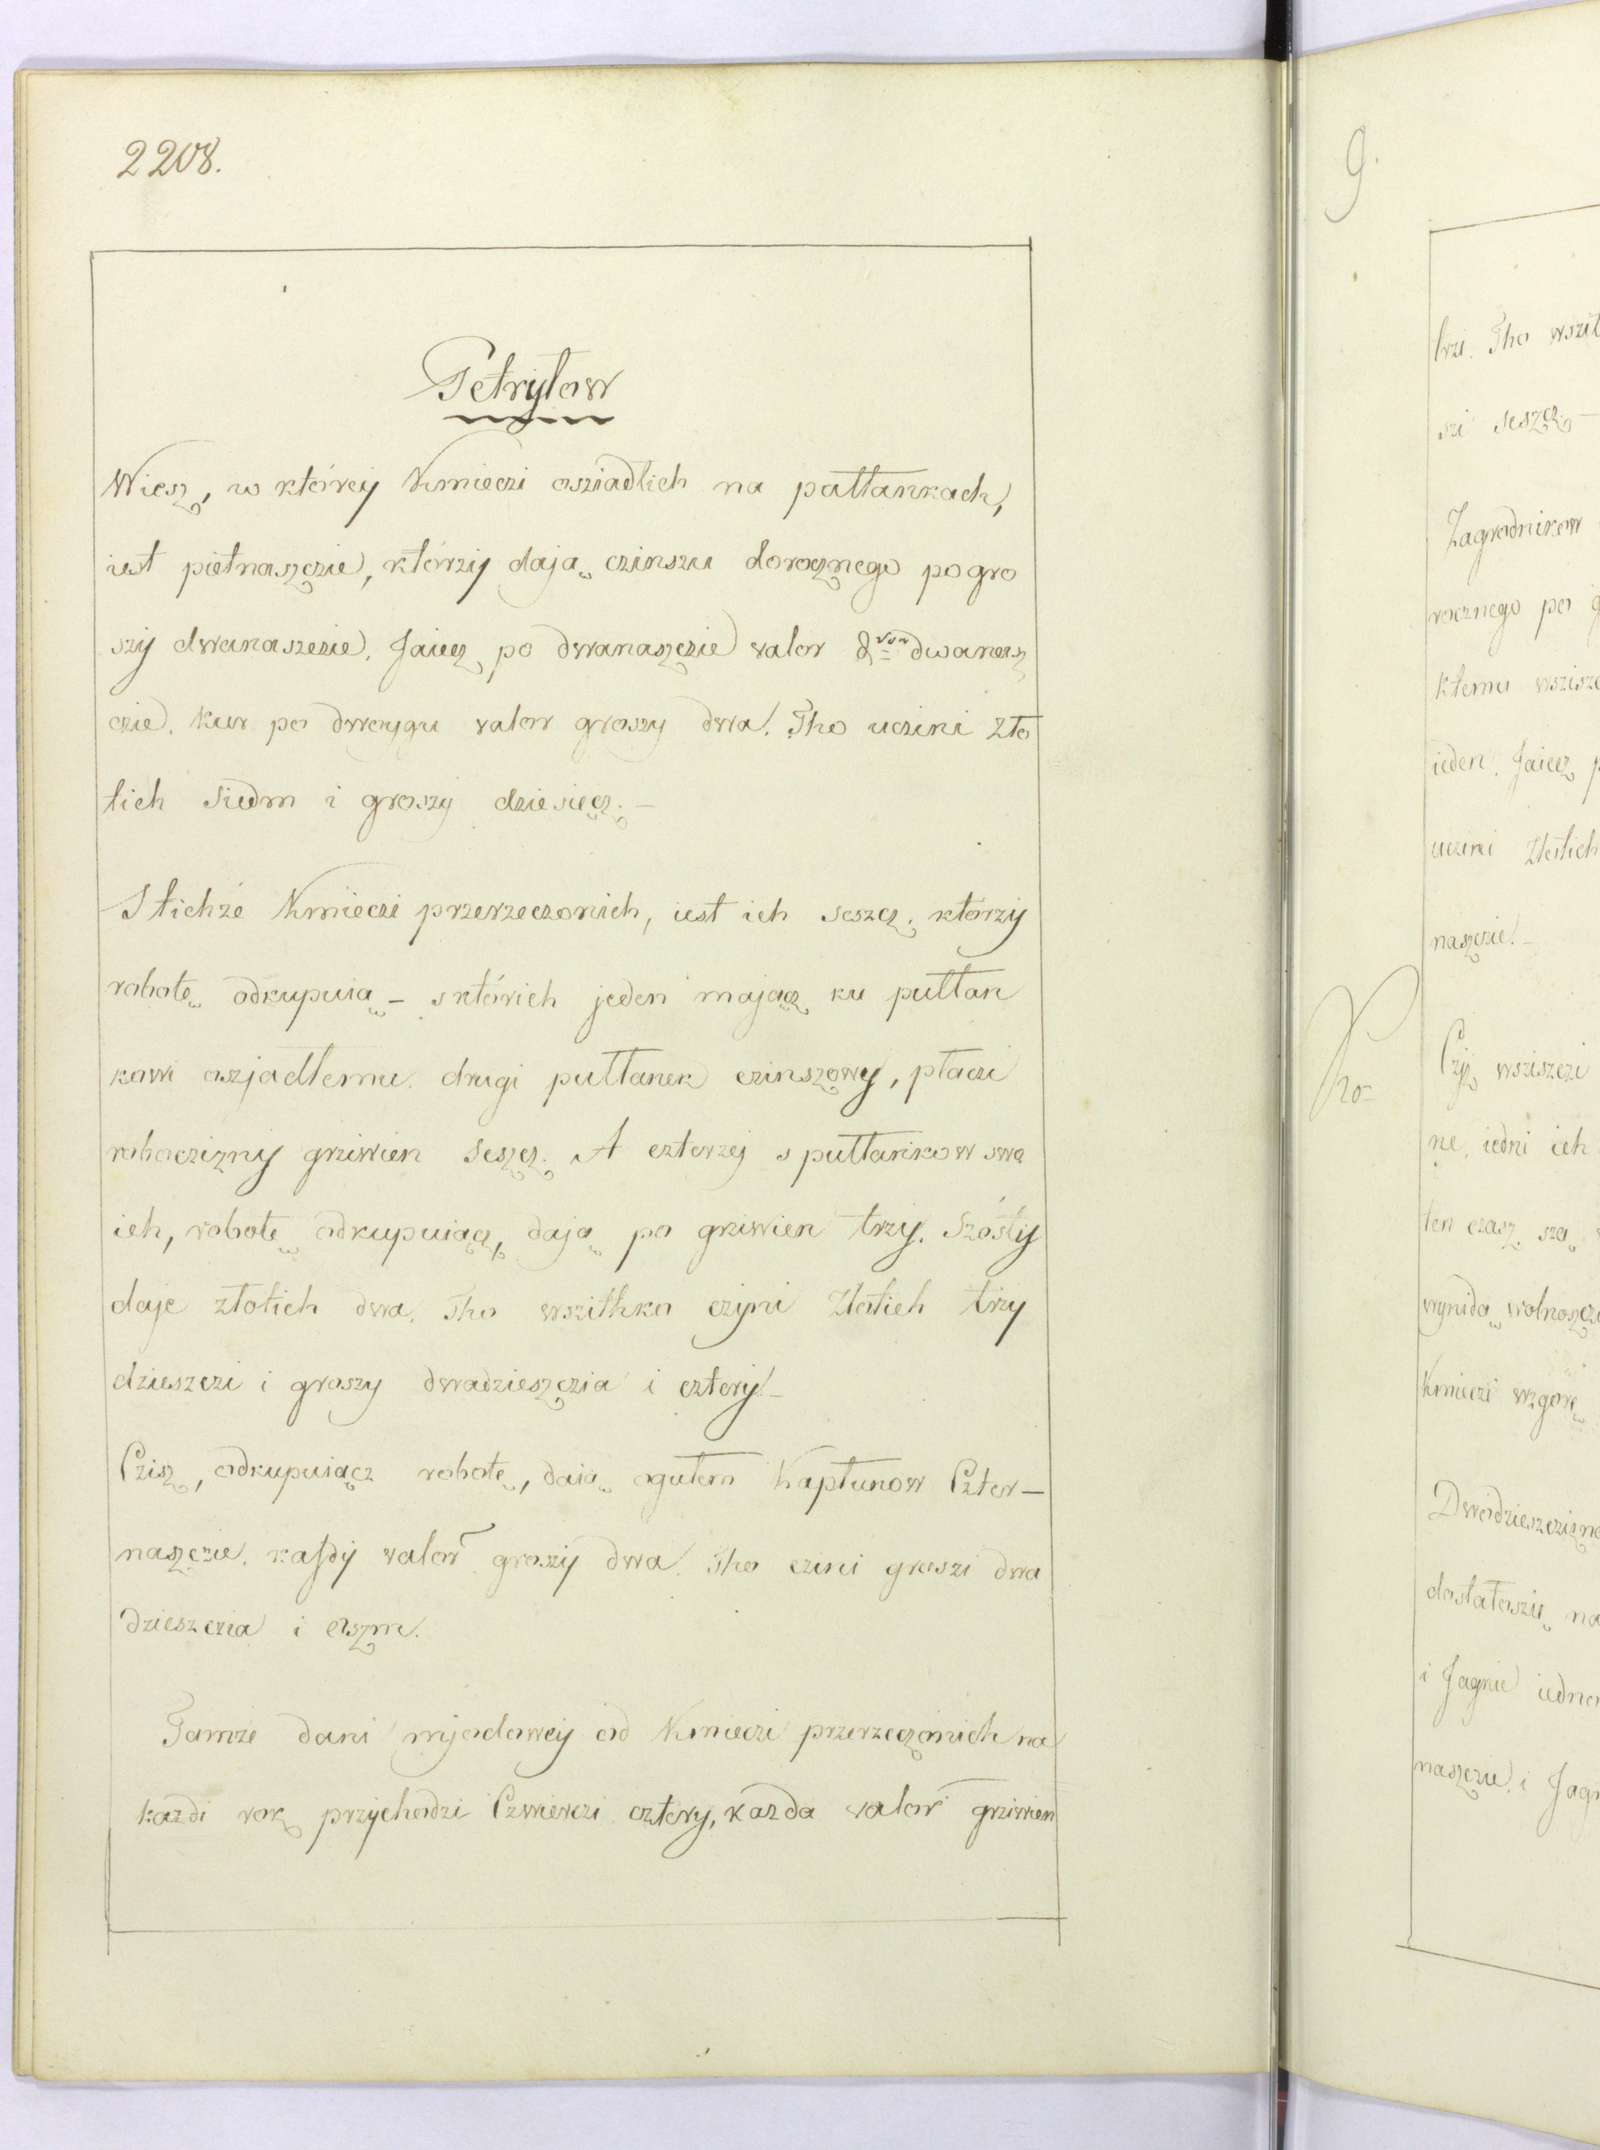 2208.
Petryłow
Wiesz, w którey Kmieczi osziadlich na pałłankach,
iest pietnaszczie, którzy dają czinszu dorocznego po gro
szy dwanaszczie. Jaiecz po dwanaszczie valor dwanasz
czie. Kur po dwoygu valor groszy dwa. Tho uczini Zło
tich Siedm i groszy dziesięcz. —
S tichże Kmieczi przerzeczonich, iest ich seszcz. którzy
robotę odkupuią — s którich jeden mająć ku pułłan
kowi oszjadłemu drugi pułłanek czinszowy, płaczi
roboczizny grziwien seszcz. A czterzej s pułłankow swo
ich, robotę odkupuiącz, dają po grziwien trzy. Szósty
daje złotich dwa. Tho wszithko czyni Złotich trzy
dzieszczi i groszy dwadzieszczia i cztery. —
Czisz, odkupuiącz robotę, daią ogułem Kapłunow Czter—
naszczie. każdy valor groszy dwa. Tho czini groszi dwa
dzieszczia i oszm.
Tamże dani mjodowey od Kmieczi przerzeczonich na
każdi rok przychodzi Czwierczi cztery, każda valor grziwien
9.
brzi. Tho wszit
szi seszcz. —
Zagrodnikow
rocznego po g
ktemu wszisz
ieden. Jaiecz p
uczini Złotich
naszczie. —
Czyż wsziszczi
ne, iedni ich
ten czasz sza
wynidą wolnoszcz
Kmieczi wzgorę
Dwadzieszczizne
dostatoszię na
i Jagnie iedno
naszczie i Jagn